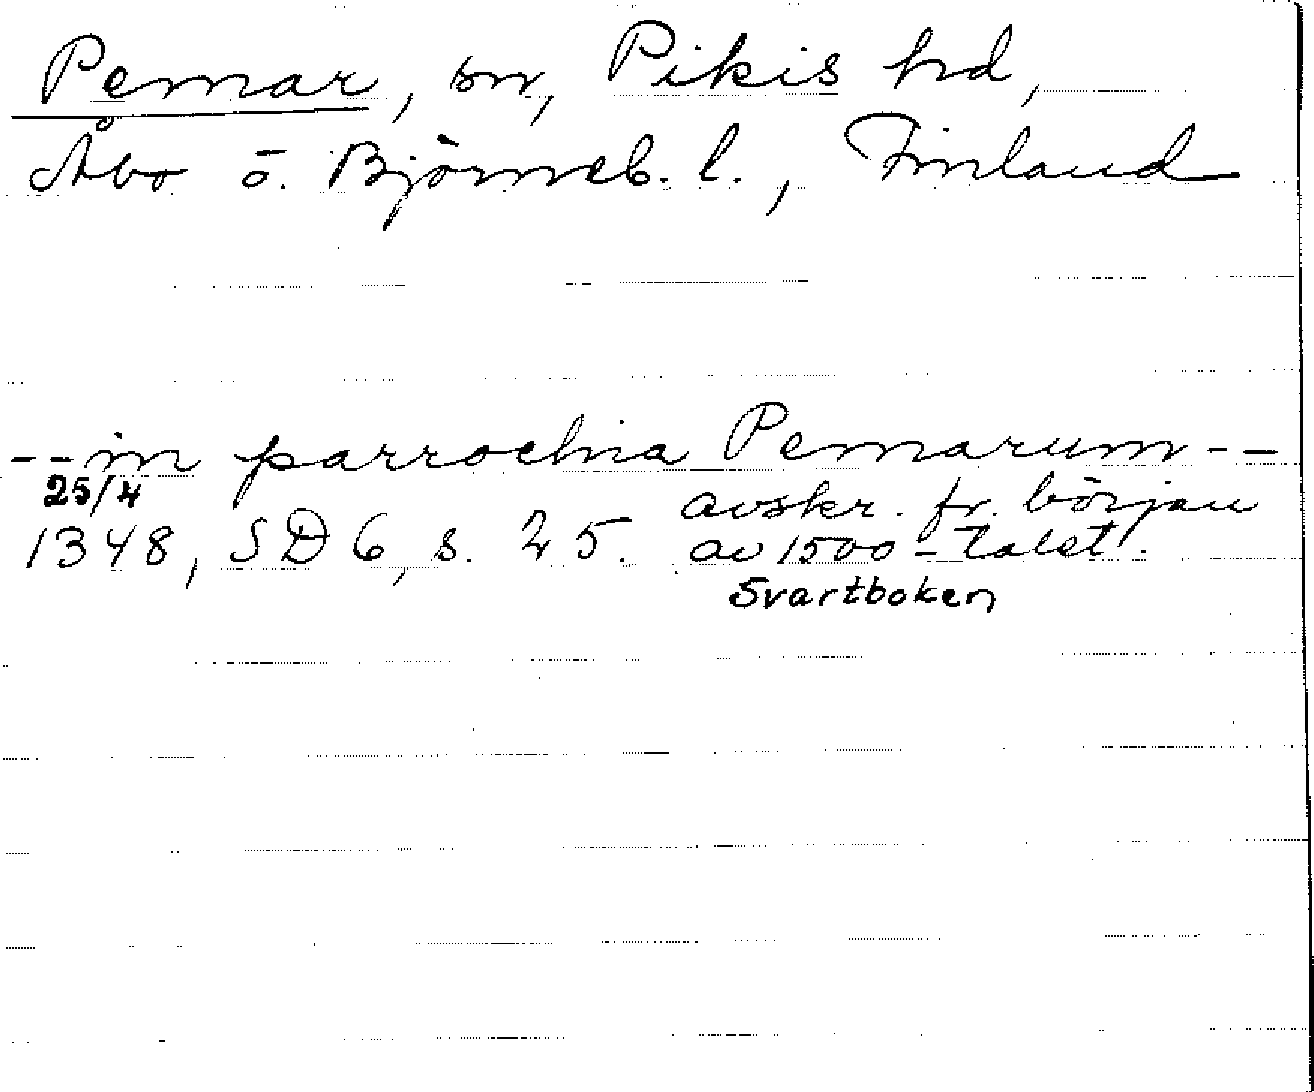 Pemar, sn, Pikis hd,
Åbo ö. Björneb. l., Finland
-- in parrochia Pemarum --
25/4
1348, SD 6, s. 25. avskr. fr. början
av 1500-talet.
Svartboken